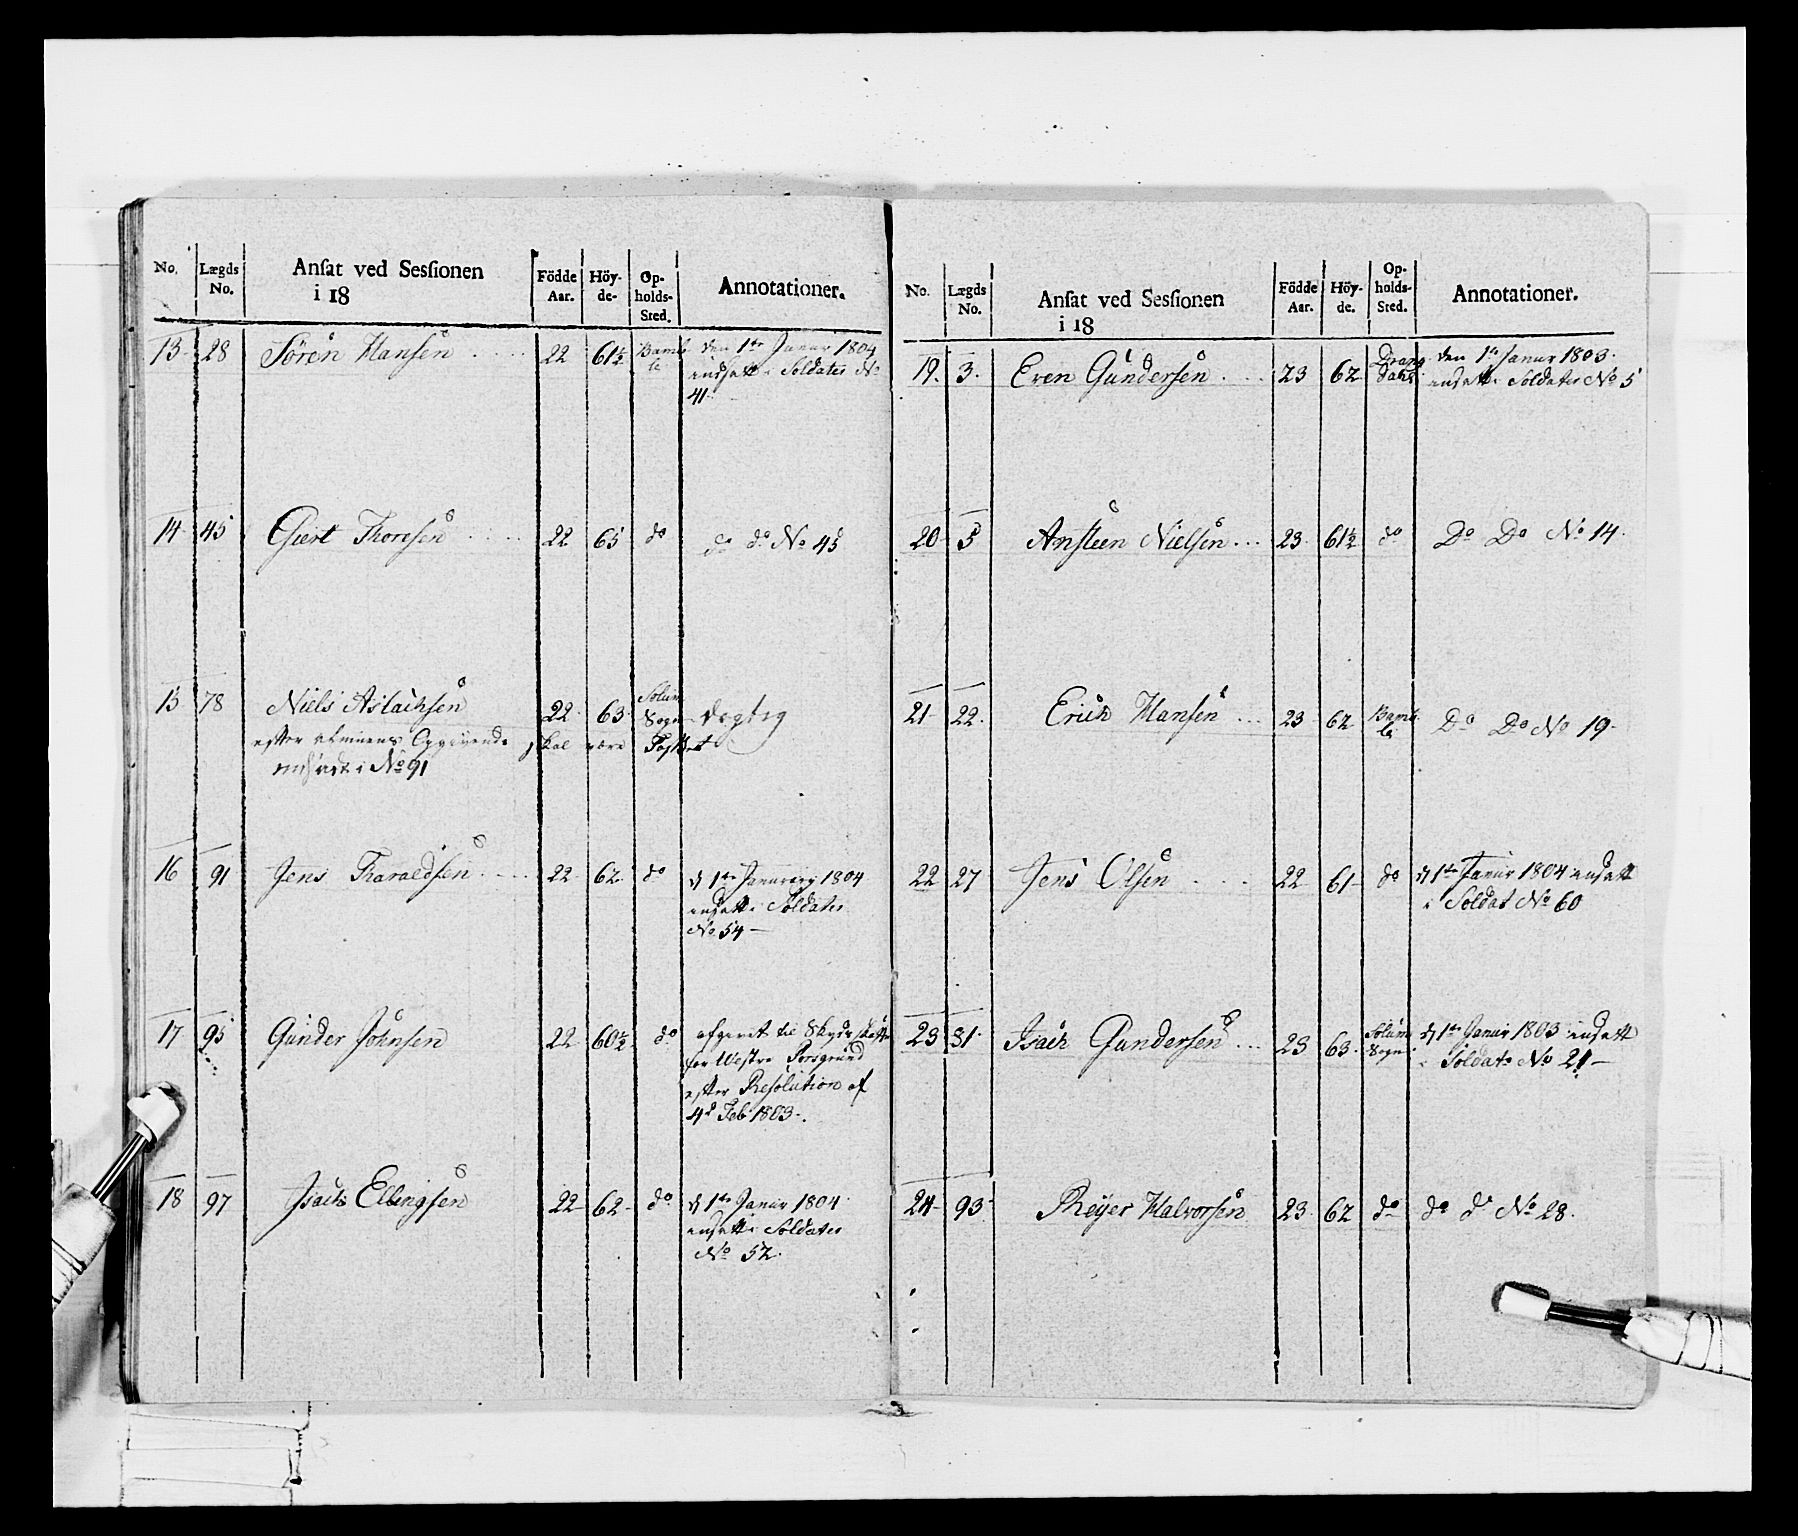 No. Lægds No. Ansat ved Sessionen i 18 Födde Aar. Höy-de. Op-holds-Sted. Annotationer.
13 28 Sören Hansen 22 61½ Bamble den 1te Janur 1804
indsatt i Soldater No
41
14 45 Giert Thoresen 22 65 do do do No 45
15 78 Niels Aslachsen 22 63 Solum Sogn dygtig
efter Opgivende skal være
indsat i No 91
16 91 Jens Haraldsen 22 62 do d 1te Januarij 1804
indsatt i Soldater
No 54
17 95 Gunder Johnsen 22 60½ do afgaaet til
for Westre Porsgrund
efter Resolution af
4d Feb 1803
18 97 Isach Ellingsen 22 62 do d 1te Janur 1804
indsatt i Soldater
No 52
No. Lægds No. Ansat ved Sessionen i 18 Födde Aar. Höy-de. Op-holds-Sted. Annotationer.
19. 3. Even Gundersen 23 62 Drangdahl den 1te Janur 1803
indsatt i Soldater No 5
20 5 Ansteen Nielsen 23 61½ do Do Do No 14
21 22 Erich Hansen 23 62 Bamble Do Do No 19
22 27 Jens Olsen 22 61 do d 1te Janur 1804 indsatt
i Soldat No 60
23 31 Isach Gundersen 23 63 Solum Sogn d 1te Janur 1803 indsatt
i Soldat No 21
24 93 Reyer Halvorsen 23 62 do do do No 28.